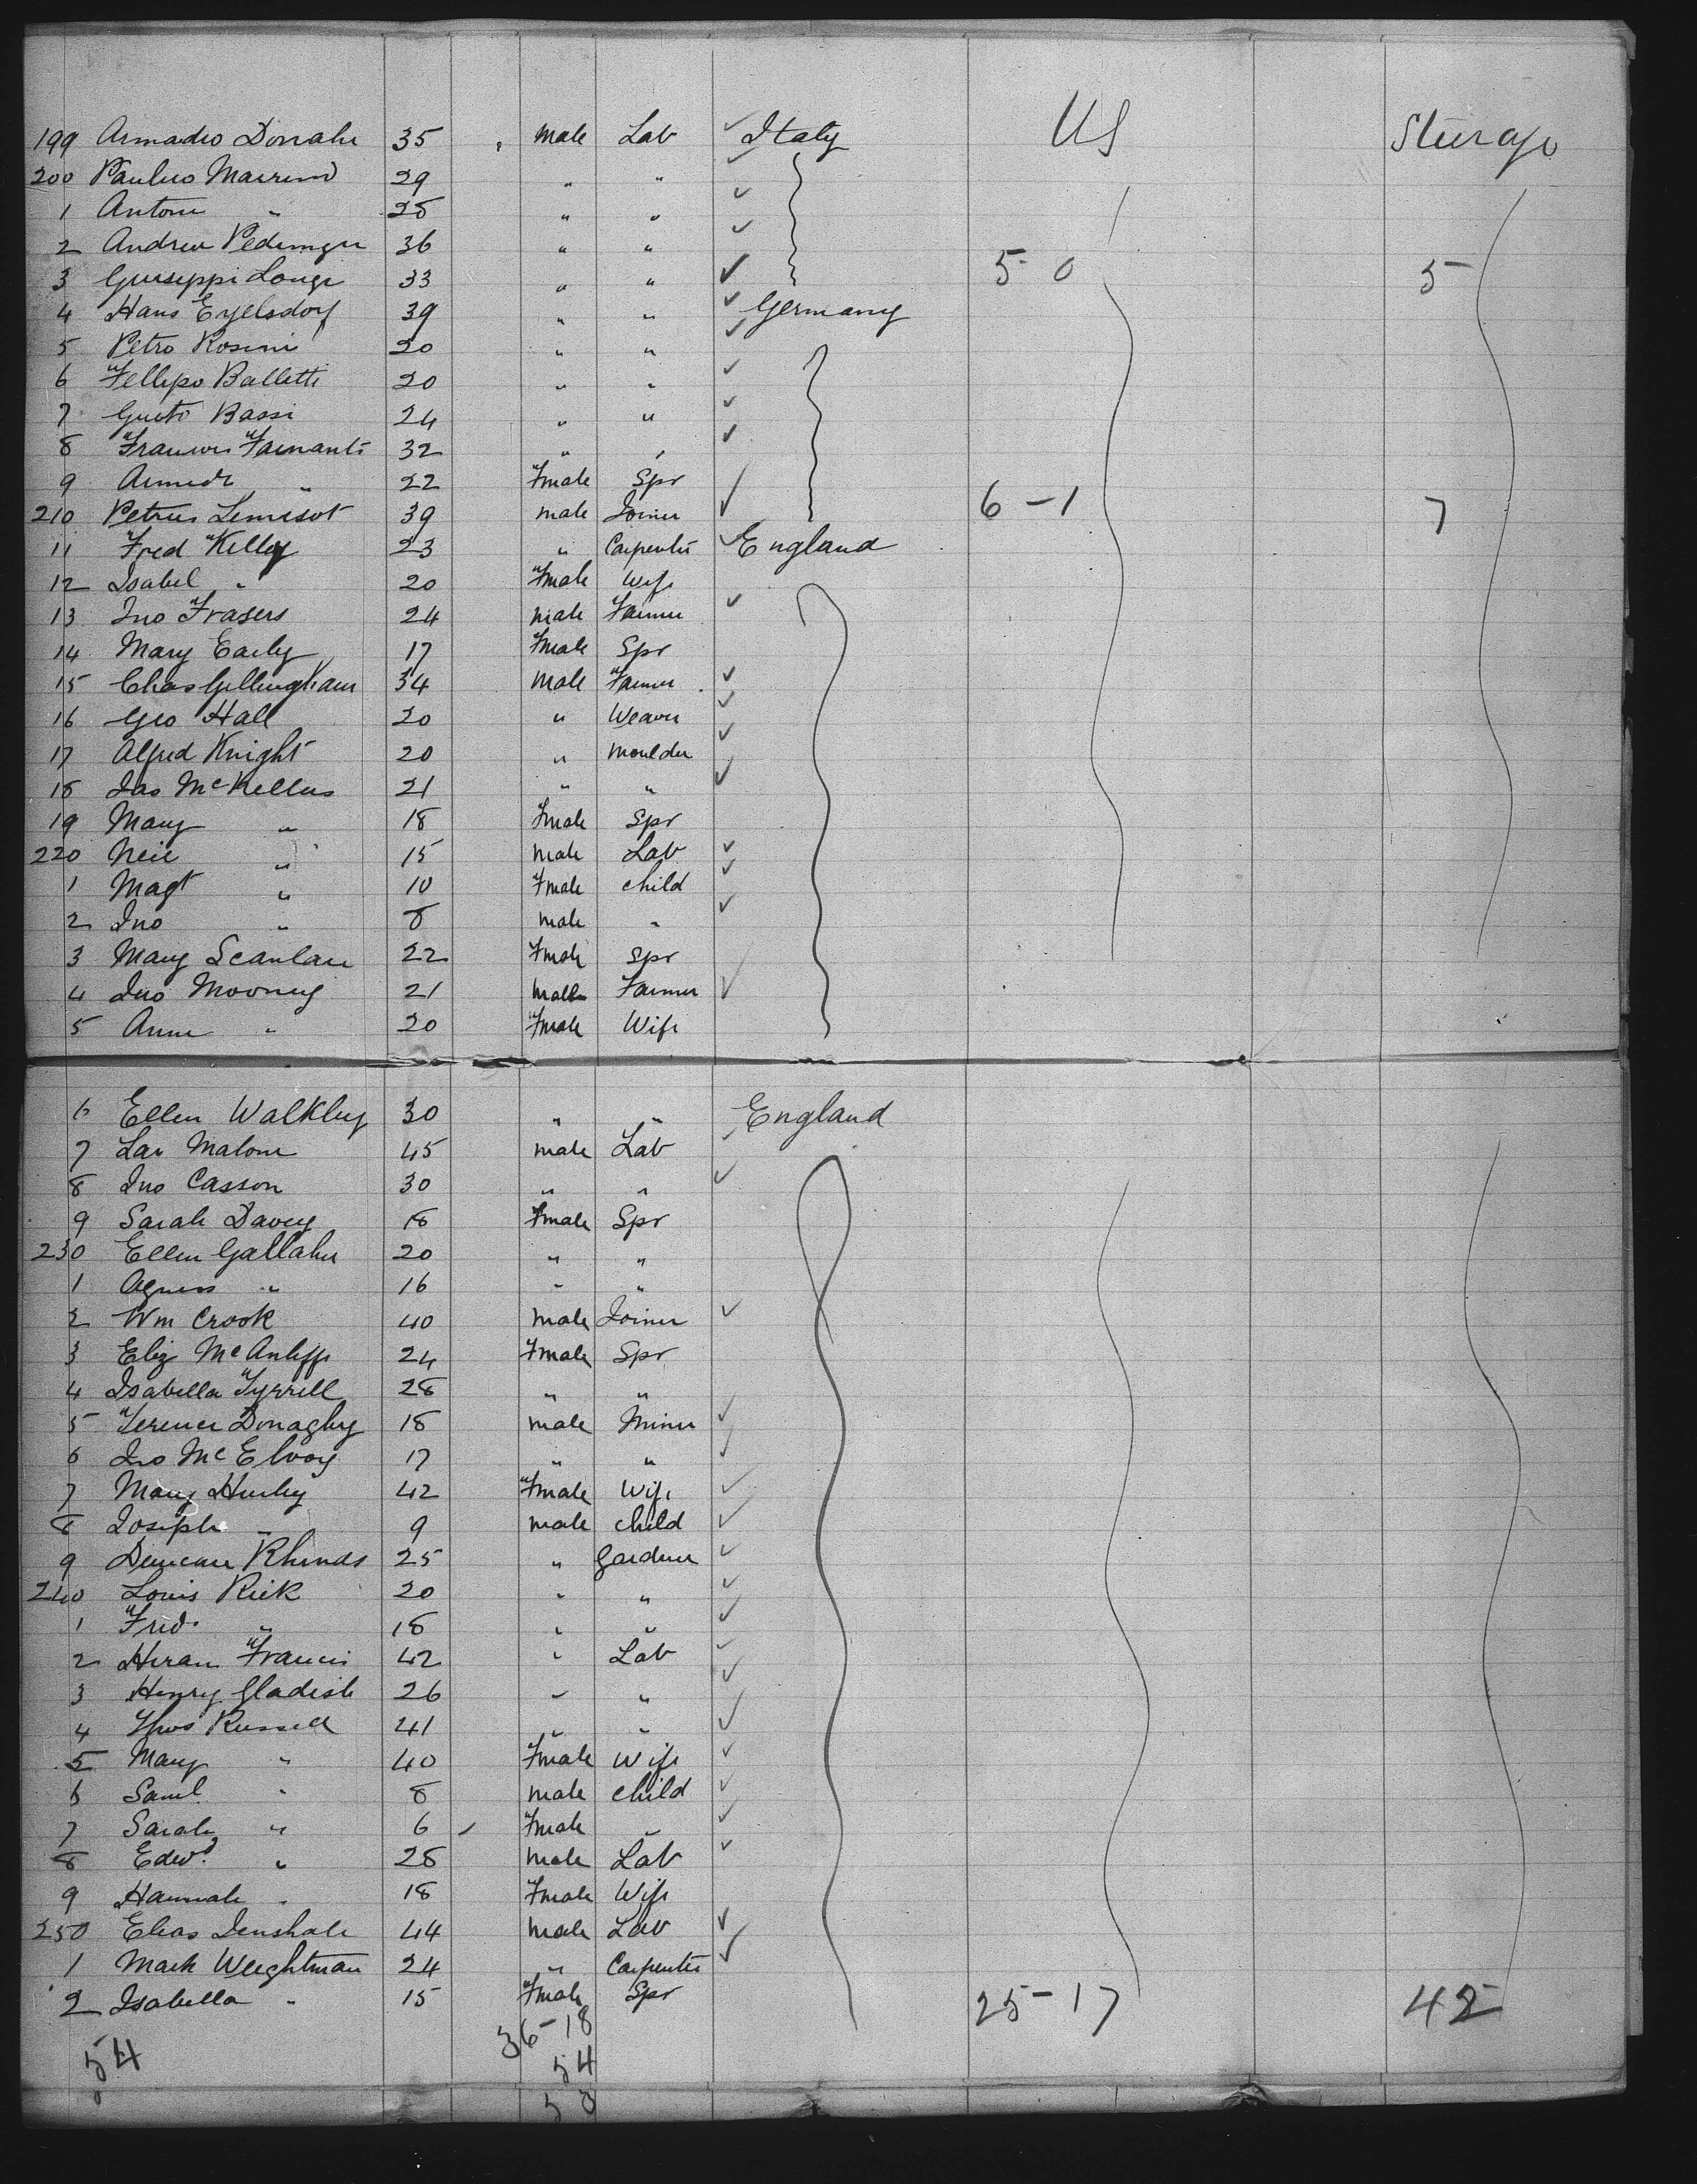 199 Armadio Donahe 35 male Lab Italy US Steerage
200 Paulino 29 " "
1 Antoni " 28 " "
2 Andrea 36 " "
3 Giuseppi Longi 33 " " 5-0 5
4 Hans Eyelsdorf 39 " " Germany
5 Petro Rosini 20 " "
6 Fellipo Balletti 20 " "
7 Gusto Bassi 24 " "
8 32 " "
9 " 22 Fmale Spr
210 Petrus 39 male Joiner 6-1 7
11 Fred Kelly 23 " Carpenter England
12 Isabel " 20 Fmale Wife
13 Jno Frasers 24 male Farmer
14 Mary Early 17 Fmale Spr
15 Chas Gillingham 34 male Farmer
16 Geo Hall 20 " Weaver
17 Alfred Knight 20 " Moulder
18 Jas McKellus 21 " "
19 Mary " 18 Fmale Spr
220 Neil " 15 male Lab
1 Magt " 10 Fmale child
2 Jno " 8 male "
3 Mary Scanlan 22 Fmale Spr
4 Jno Mooney 21 male Farmer
5 Anne " 20 Fmale Wife
6 Ellen Walkley 30 " " England
7 Malone 45 male Lab
8 Jno Casson 30 " "
9 Sarah Davey 18 Fmale Spr
230 Ellen Gallaher 20 " "
1 Agness " 16 " "
2 Wm Crook 40 male Joiner
3 Eliz McAuliffe 24 Fmale Spr
4 Isabella Tyrrell 28 " "
5 Terence Donaghy 18 male Miner
6 Jno McElvoy 17 " "
7 Mary Hurley 42 Fmale Wife
8 Joseph " 9 male child
9 Duncan Rhinds 25 " Gardner
240 Louis Rick 20 " "
1 Fred. " 18 " "
2 Hiram Francis 42 " Lab
3 Henry Gladish 26 " "
4 Thos Russell 41 " "
5 Mary " 40 Fmale Wife
6 Saml. " 8 male child
7 Sarah " 6 Fmale "
8 Edwd " 28 male Lab
9 Hannah " 18 Fmale Wife
250 Elias 44 male Lab
1 Mark Weightman 24 " Carpenter
2 Isabella " 15 Fmale Spr 25-17 42
54 36-18
54